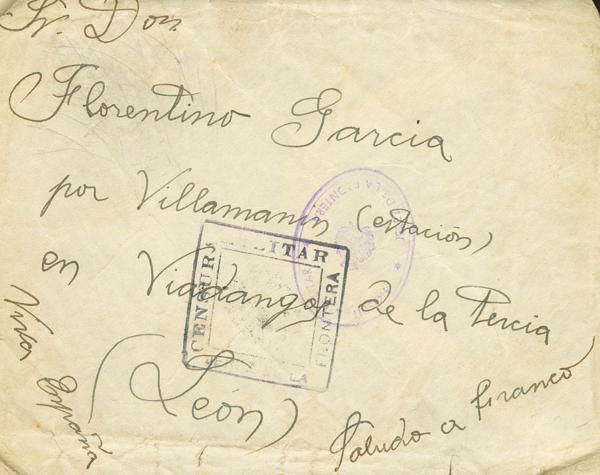 Sr. Don
Florentino Garcia
por Villamanin (estación)
en Viadangos de la Tercia
(León)
Viva España
Saludo a Franco
CENSURA MILITAR
LA FRONTERA